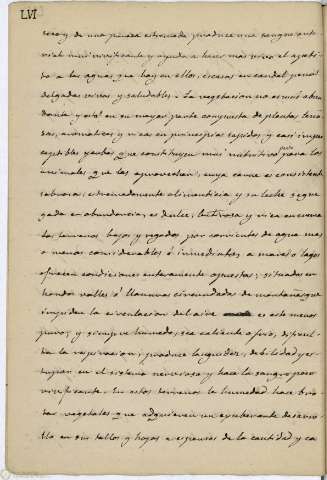 LVI
seco y de una pureza estremada produce una sangre arte-
rial muy vivificante y ayuda a hacer mas vivo el apeti-
to a las aguas que hay en ellos, escasas en caudal, pero
delgadas vivas y saludables. La vegetacion no es muy abun-
dante y está en su mayor parte compuesta de plantas leno-
sas, aromaticas y ricas en principios sapidos y casi imper-
ceptibles yerbas que constituyen muy nutritivo pasto para los
animales que las aprovechan, cuya carne es consistente
sabrosa, estremadamente alimenticia y su leche segre-
gada en abundancia, es dulce, butirosa y rica en crema
Los terrenos bajos y regados por corrientes de agua mas
o menos considerables ó inmediatos, a mares ó lagos
ofrecen condiciones enteramente opuestas; situados en
hondos valles ó llanuras circundadas de montañas que
impiden la circulacion del aire es este menos
puro, y siempre humedo, sea caliente o frio, dificul-
ta la respiracion; produce languidez, debilidad y es-
tupor en el sistema nervioso y hace la sangre poco
vivificante. En estos terrenos la humedad hace bro-
tar vegetales que adquieren un exuberante desarro-
llo en sus tallos y hojas a espensas de la cantidad y ca